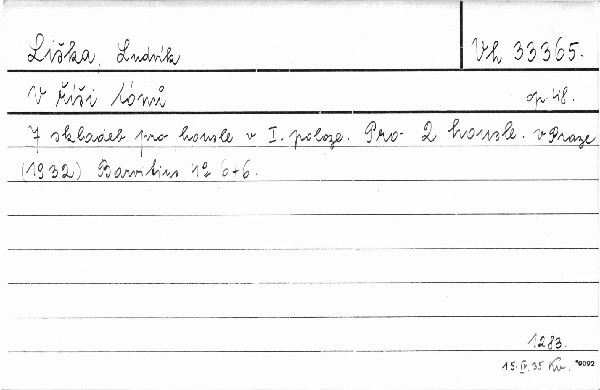 Liška, Ludvík
Vh 33365.
V říši tónů
op. 48.
7 skladeb pro housle v I. poloze. Pro 2 housle. v Praze
(1932) Barvitius 1º 6+6.
1283.
15. IV. 35. Kv. *9092